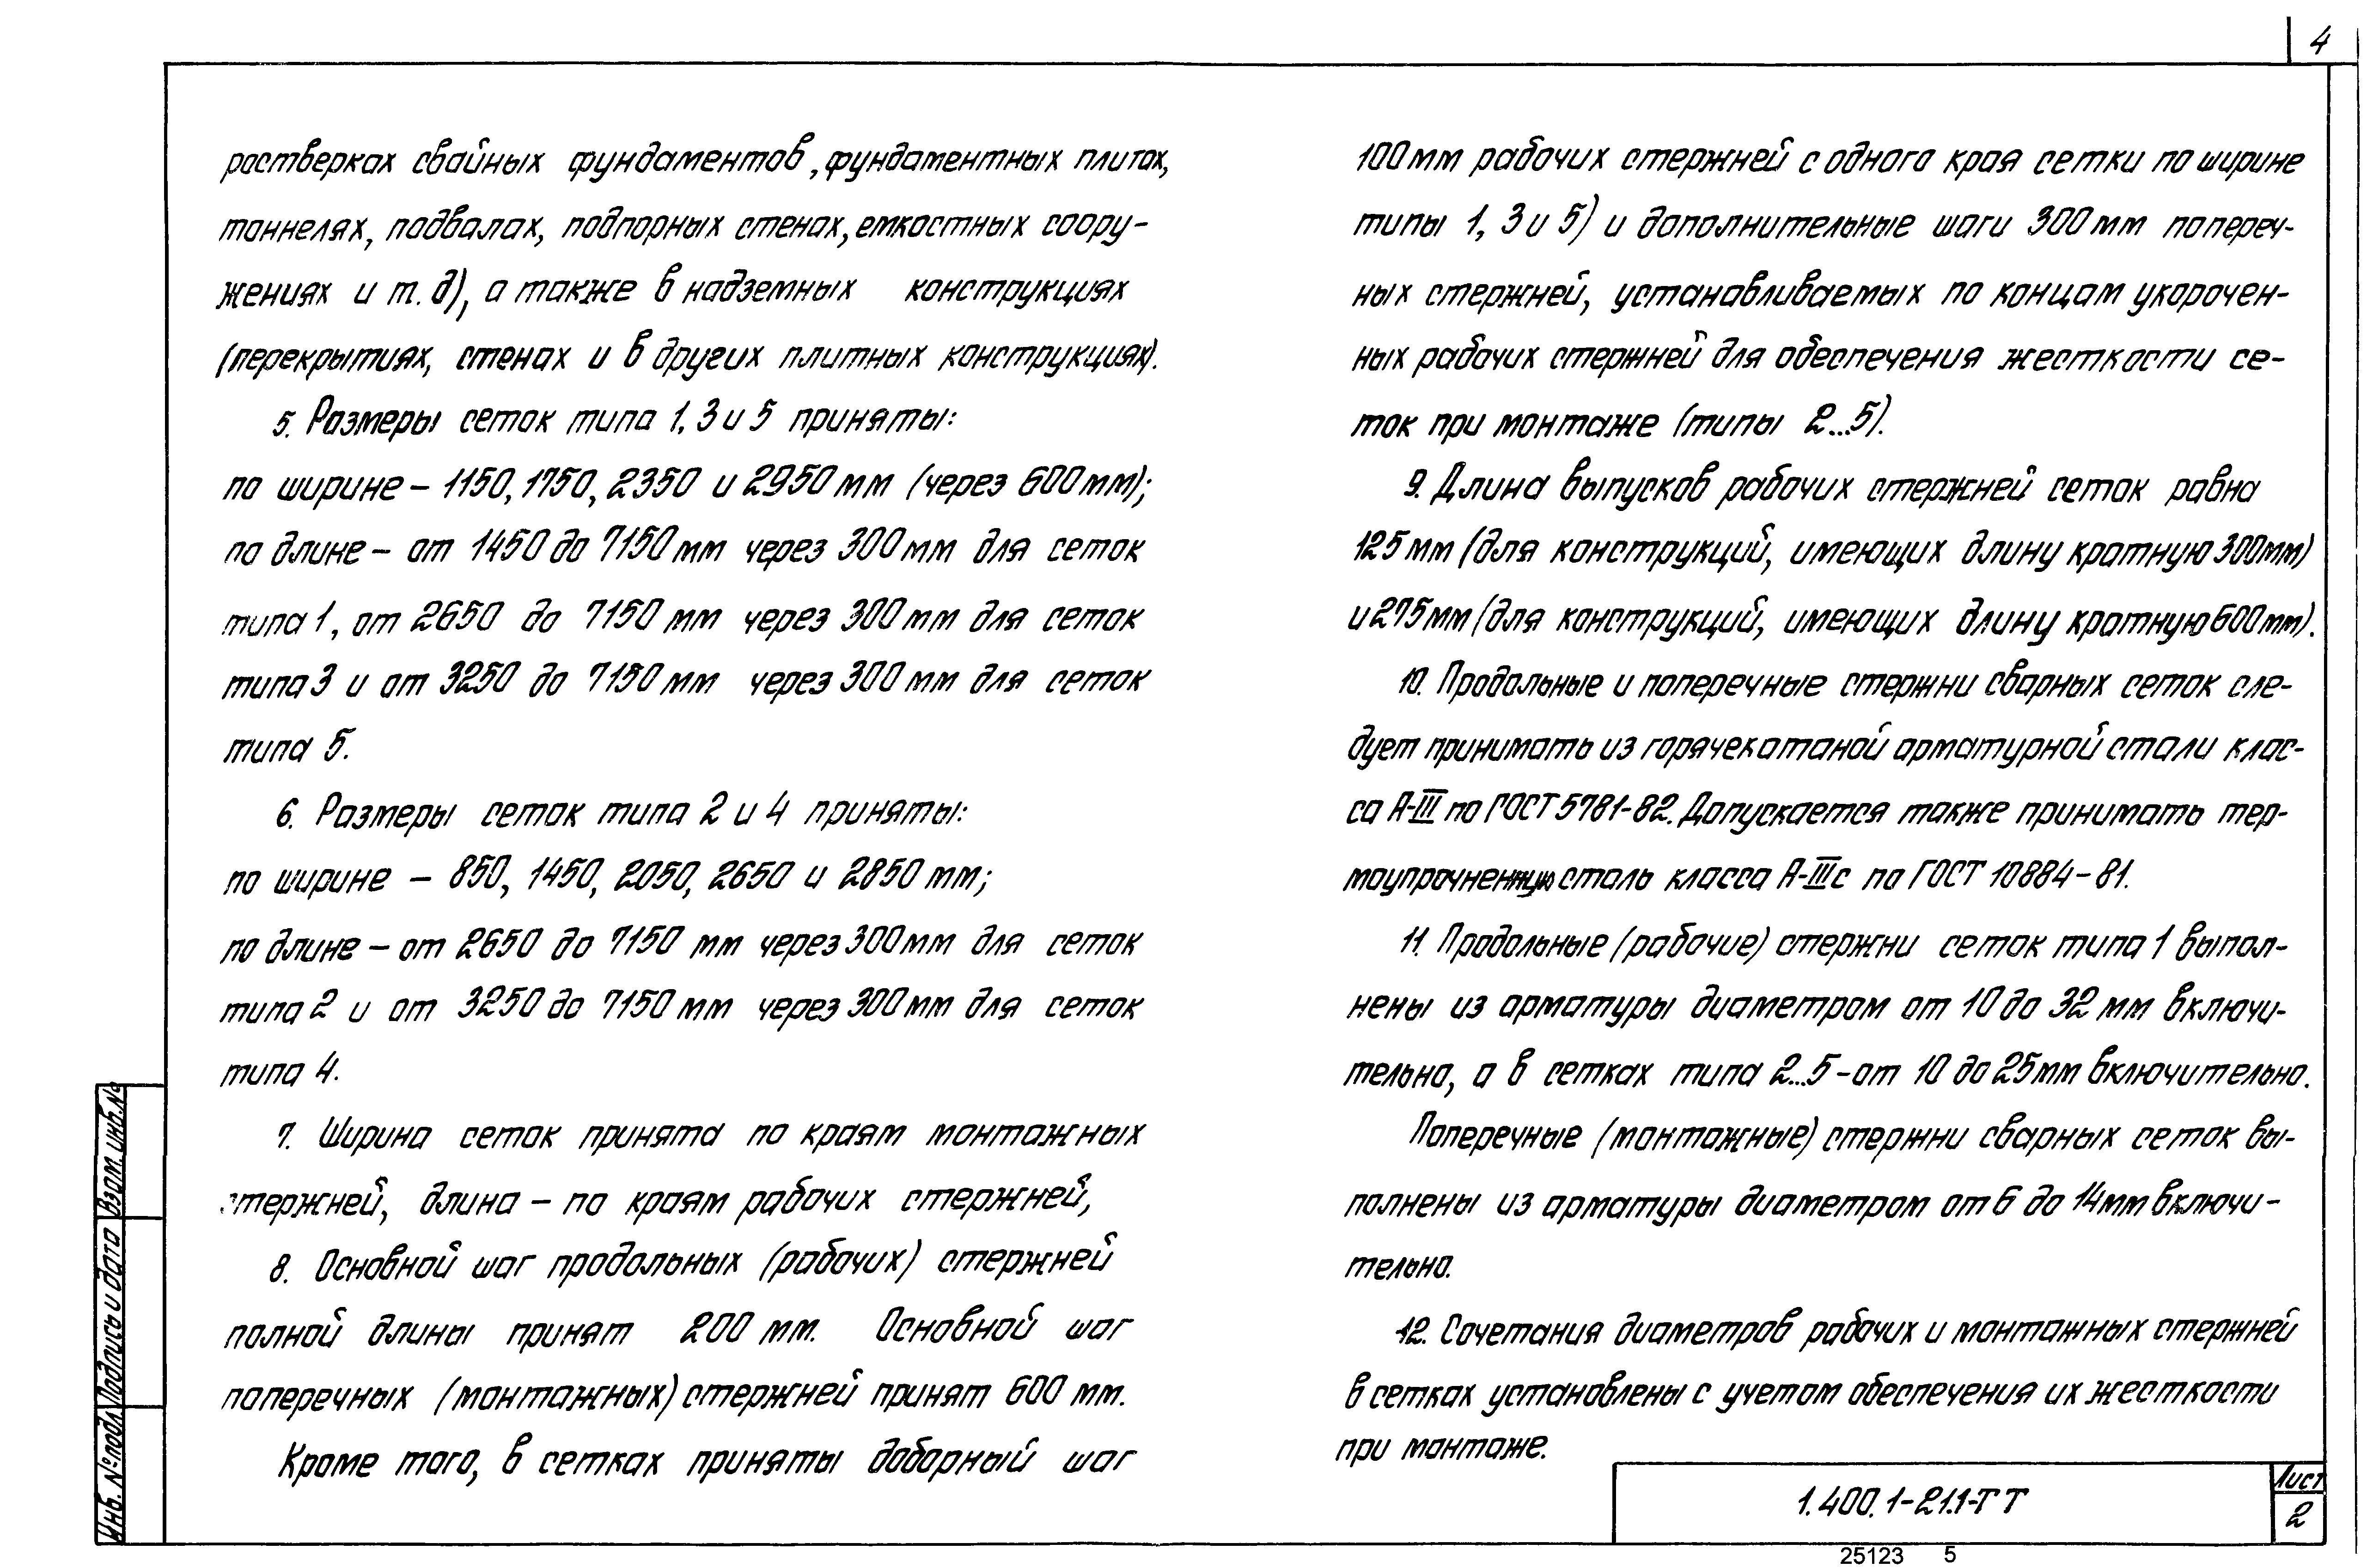 4
ростверках свайных фундаментов, фундаментных плитах,
тоннелях, подвалах, подпорных стенах, емкостных соору-
жениях и т.д), а также в надземных конструкциях
(перекрытиях, стенах и в других плитных конструкциях).
5. Размеры сеток типа 1, 3 и 5 приняты:
по ширине – 1150, 1750, 2350 и 2950 мм (через 600 мм);
по длине – от 1450 до 7150 мм через 300 мм для сеток
типа 1, от 2650 до 7150 мм через 300 мм для сеток
типа 3 и от 3250 до 7150 мм через 300 мм для сеток
типа 5.
6. Размеры сеток типа 2 и 4 приняты:
по ширине – 850, 1450, 2050, 2650 и 2850 мм;
по длине – от 2650 до 7150 мм через 300 мм для сеток
типа 2 и от 3250 до 7150 мм через 300 мм для сеток
типа 4.
7. Ширина сеток принята по краям монтажных
стержней, длина – по краям рабочих стержней,
8. Основной шаг продольных (рабочих) стержней
полной длины принят 200 мм. Основной шаг
поперечных (монтажных) стержней принят 600 мм.
Кроме того, в сетках приняты доборный шаг
100 мм рабочих стержней с одного края сетки по ширине
типы 1, 3 и 5) и дополнительные шаги 300 мм попереч-
ных стержней, устанавливаемых по концам укорочен-
ных рабочих стержней для обеспечения жесткости се-
ток при монтаже (типы 2...5).
9. Длина выпусков рабочих стержней сеток равна
125 мм (для конструкций, имеющих длину кратную 300 мм)
и 275 мм (для конструкций, имеющих длину кратную 600 мм).
10. Продольные и поперечные стержни сварных сеток сле-
дует принимать из горячекатаной арматурной стали клас-
са А-III по ГОСТ 5781-82. Допускается также принимать тер-
моупрочненную сталь класса А-IIIс по ГОСТ 10884-81.
11. Продольные (рабочие) стержни сеток типа 1 выпол-
нены из арматуры диаметром от 10 до 32 мм включи-
тельно, а в сетках типа 2...5 – от 10 до 25 мм включительно.
Поперечные (монтажные) стержни сварных сеток вы-
полнены из арматуры диаметром от 6 до 14 мм включи-
тельно.
12. Сочетания диаметров рабочих и монтажных стержней
в сетках установлены с учетом обеспечения их жесткости
при монтаже.
Инв. № подл
Подпись и дата
Взам. инв. №
1.400.1-21.1-ТТ
Лист
2
25123 5